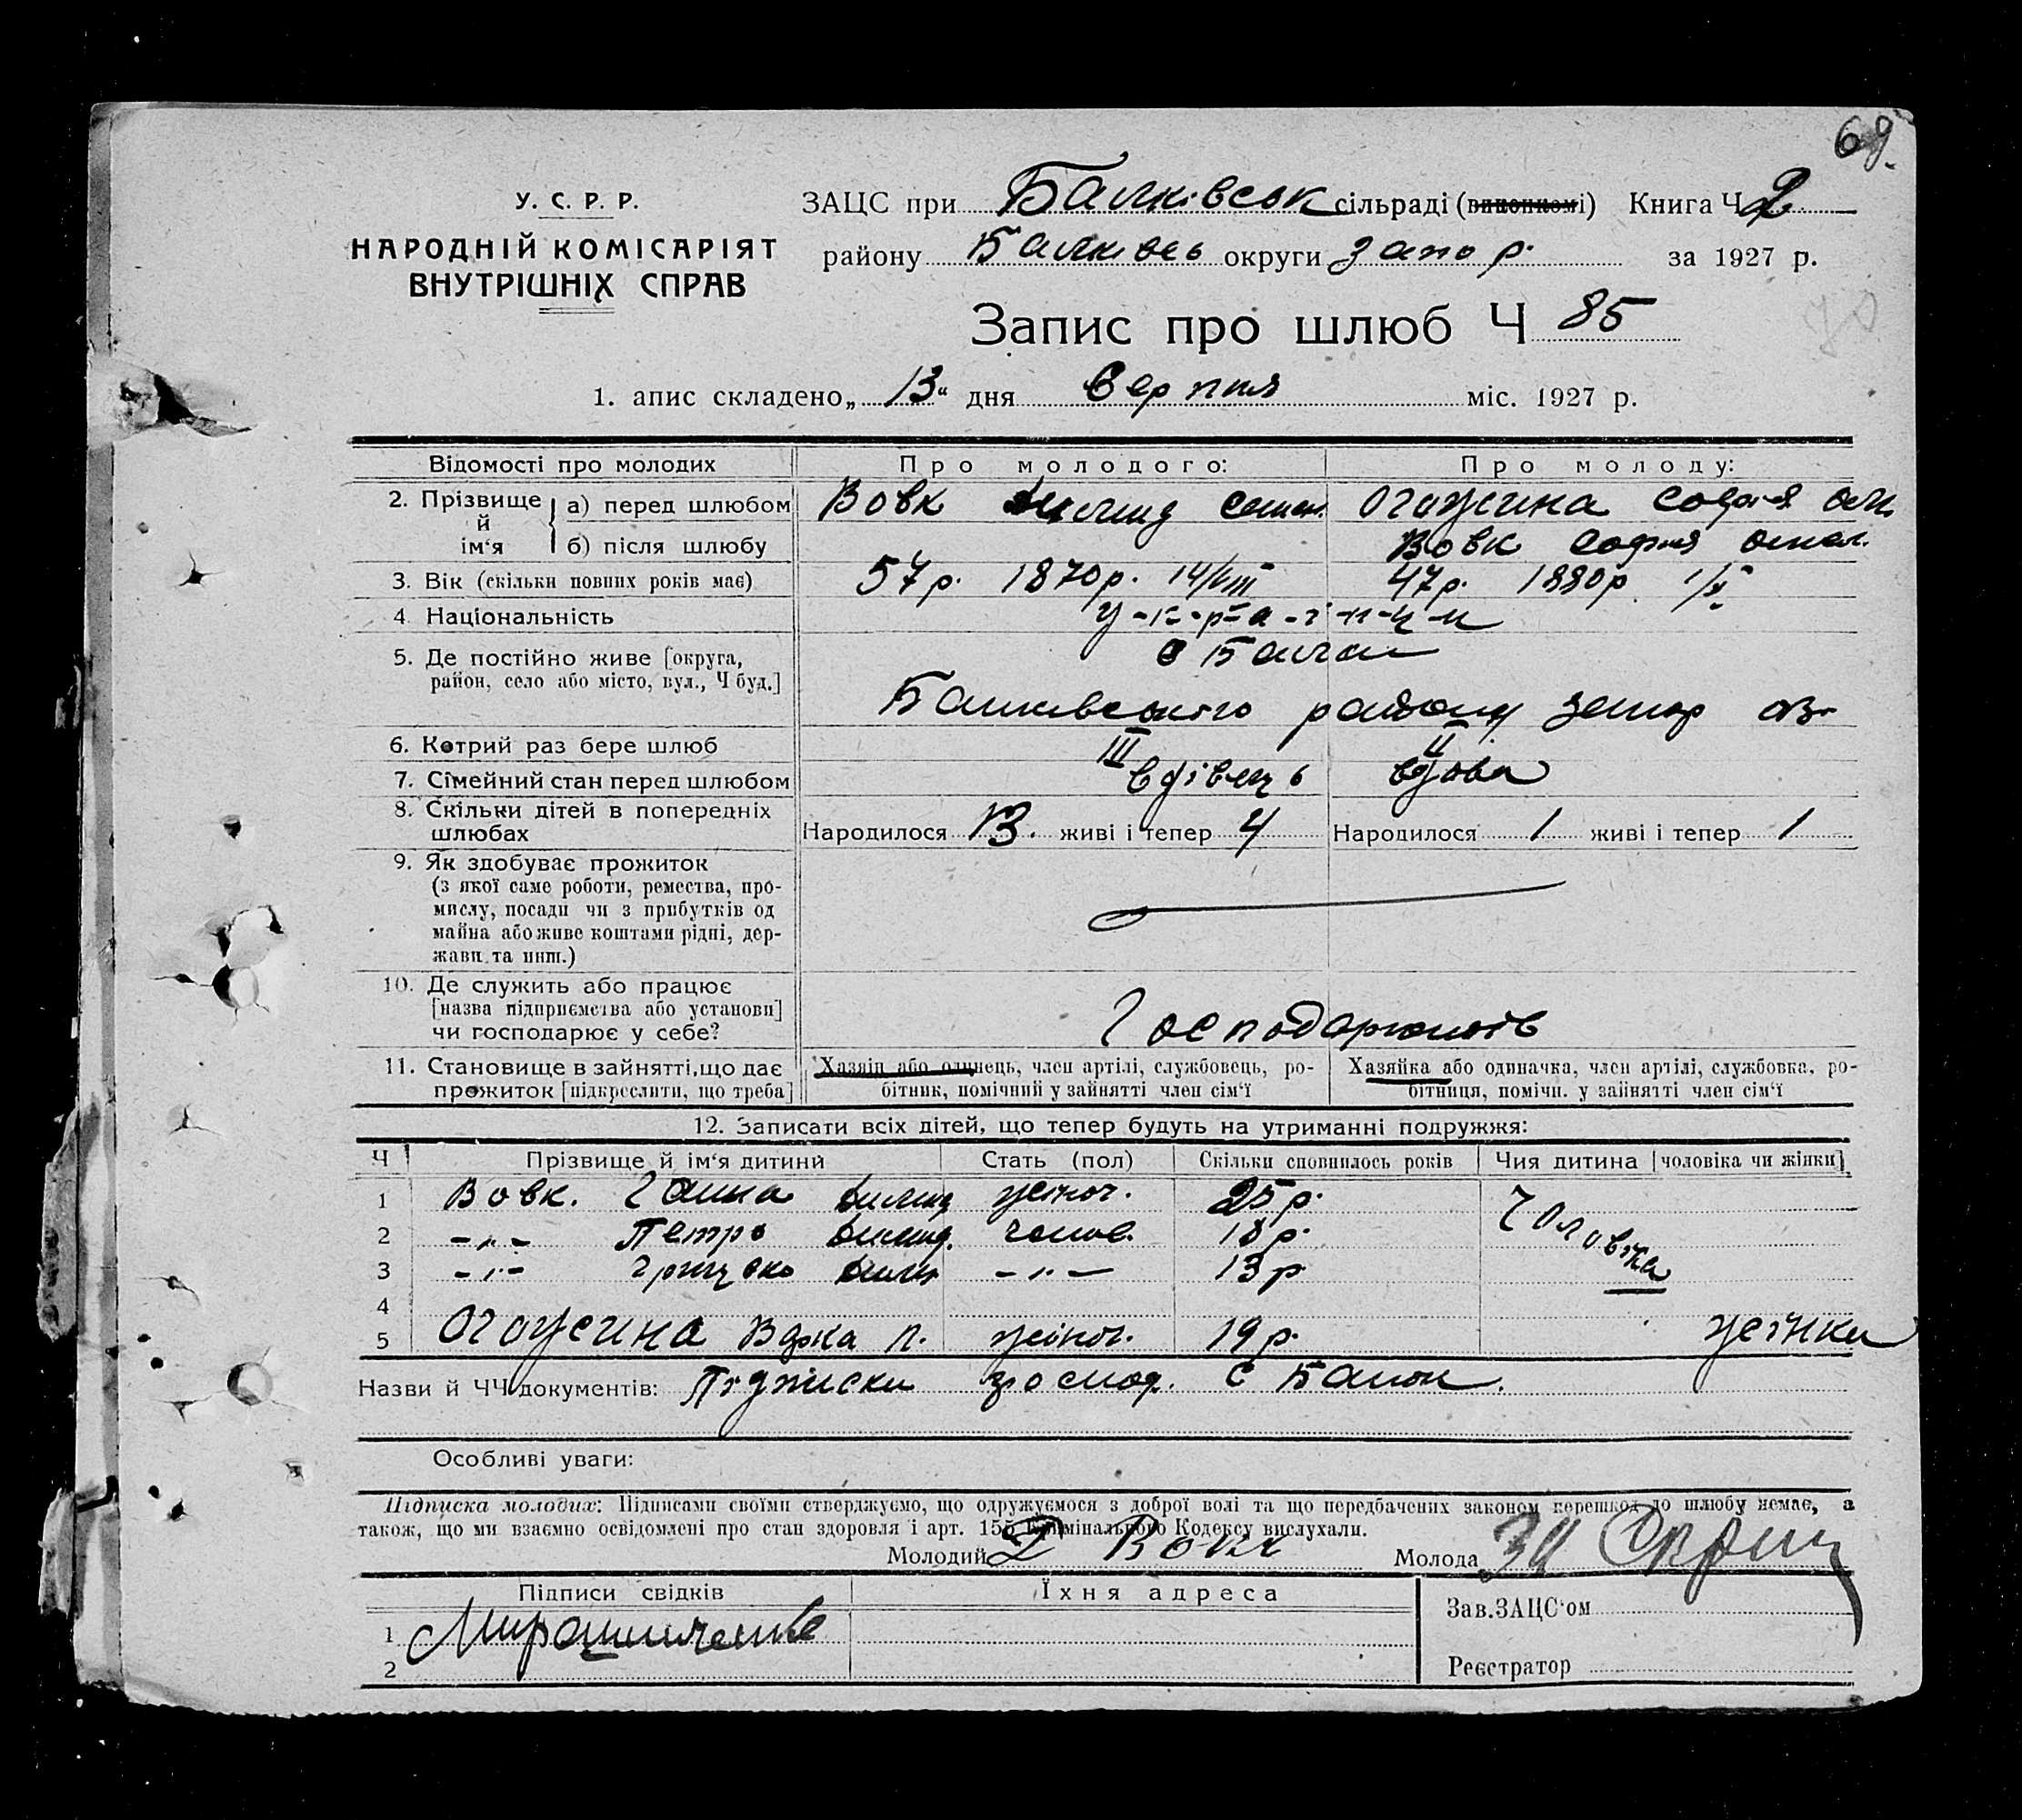 69.
У. С. Р. Р.
НАРОДНІЙ КОМІСАРІЯТ
ВНУТРІШНІХ СПРАВ
ЗАЦС при Балківськ сільраді (виконкомі) Книга Ч 2
району Балківсь округи запор. за 1927 р.
Запис про шлюб Ч 85
70
1. апис складено „ 13 “ дня Серпня міс. 1927 р.
Відомості про молодих
Про молодого:
Про молоду:
2. Прізвище й ім‘я
а) перед шлюбом
Вовк Семен.
Софія
б) після шлюбу
Вовк Софія
3. Вік (скільки повних років має)
57 р. 1870 р. 14/VIII
47 р. 1880 р. 1/X
4 Національність
у-к-р-а-ї-н-ц-и
5. Де постійно живе [округа,
район, село або місто, вул., Ч буд.]
с Балки
Балківського району запор окр
6. Котрий раз бере шлюб
III
II
7. Сімейний стан перед шлюбом
вдівець
вдова
8. Скільки дітей в попередніх
шлюбах
Народилося 13. живі і тепер 4
Народилося 1 живі і тепер 1
9. Як здобуває прожиток
(з якої саме роботи, ремества, про-
мислу, посади чи з прибутків од
майна або живе коштами рідні, дер-
жави та инш.)
10. Де служить або працює
[назва підприємства або установи]
чи господарює у себе?
Господарюють
11. Становище в зайнятті, що дає
прожиток [підкреслити, що треба]
Хазяїн або одинець, член артілі, службовець, ро-
бітник, помічний у зайнятті член сім‘ї
Хазяйка або одиначка, член артілі, службовка, ро-
бітниця, помічн. у зайнятті член сім‘ї
12. Записати всіх дітей, що тепер будуть на утриманні подружжя:
Ч
Прізвище й ім‘я дитини
Стать (пол)
Скільки сповнилось років
Чия дитина [чоловіка чи жінки]
1 Вовк. Ганна жіноч. 25 р. Чоловіка
2 -„- Петро чолов. 18 р.
3 -„- Грицько -„- 13 р
4
5 жіноч. 19 р. жінки
Назви й ЧЧ документів: Підписки с Балки.
Особливі уваги:
Підписка молодих: Підписами своїми стверджуємо, що одружуємося з доброї волі та що передбачених законом перешкод до шлюбу немає, а
також, що ми взаємно освідомлені про стан здоровля і арт. 155 Кримінального Кодексу вислухали.
Молодий Д Вовк
Молода за
Підписи свідків
Їхня адреса
1 Мирошниченко
2
Зав.ЗАЦС‘ом
Реєстратор